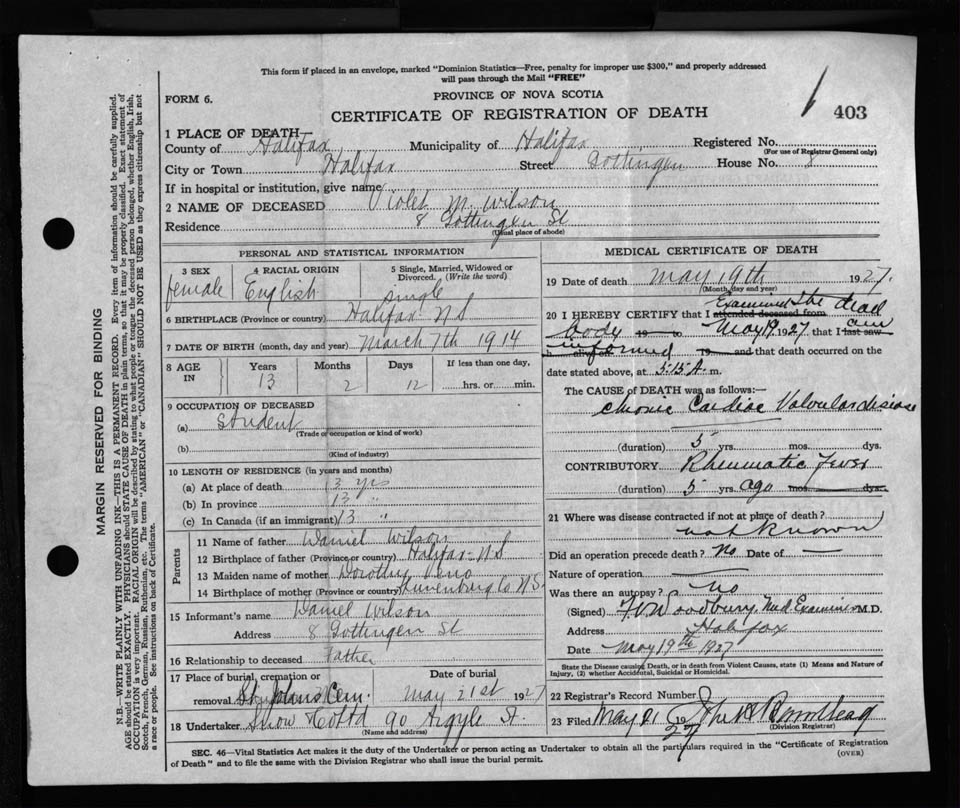 This form if placed in an envelope, marked "Dominion Statistics—Free, penalty for improper use $300," and properly addressed
will pass through the Mail "FREE"
FORM 6.
PROVINCE OF NOVA SCOTIA
CERTIFICATE OF REGISTRATION OF DEATH
403
1 PLACE OF DEATH—
County of Halifax Municipality of Halifax Registered No.
(For use of Registrar General only)
City or Town Halifax Street Gottingen House No. 8
If in hospital or institution, give name
2 NAME OF DECEASED Violet M. Wilson
Residence 8 Gottingen St
(Usual place of abode)
PERSONAL AND STATISTICAL INFORMATION
3 SEX female
4 RACIAL ORIGIN English
5 Single, Married, Widowed or Divorced. (Write the word) single
6 BIRTHPLACE (Province or country) Halifax N S
7 DATE OF BIRTH (month, day and year) March 7th 1914
8 AGE IN Years 13 Months 2 Days 12 If less than one day, hrs. or min.
9 OCCUPATION OF DECEASED
(a) Student
(Trade or occupation or kind of work)
(b)
(Kind of industry)
10 LENGTH OF RESIDENCE (in years and months)
(a) At place of death 13 yrs
(b) In province 13 "
(c) In Canada (if an immigrant) 13 "
Parents
11 Name of father Daniel Wilson
12 Birthplace of father (Province or country) Halifax N S
13 Maiden name of mother Dorothy Veno
14 Birthplace of mother (Province or country) Lunenburg Co N S
15 Informant's name Daniel Wilson
Address 8 Gottingen St
16 Relationship to deceased Father
17 Place of burial, cremation or removal St Johns Cem. Date of burial May 21st 1927
18 Undertaker Snow Co Ltd 90 Argyle St.
(Name and address)
MEDICAL CERTIFICATE OF DEATH
19 Date of death May 19th 1927.
(Month, day and year)
20 I HEREBY CERTIFY that I attended deceased from Examined the dead
body 19 to May 19 1927 that I last saw am
informed 19 and that death occurred on
date stated above, at 5.15 A. m.
The CAUSE of DEATH was as follows:—
Chronic Cardiac Valvular disease
(duration) 5 yrs. mos. dys.
CONTRIBUTORY Rheumatic Fever
(duration) 5 yrs. ago mos. dys.
21 Where was disease contracted if not at place of death?
not known
Did an operation precede death? No Date of —
Nature of operation —
Was there an autopsy? No
(Signed) Woodbury Med Examiner M.D.
Address Halifax
Date May 19th 1927
State the Disease causing Death, or in death from Violent Causes, state (1) Means and Nature of
Injury, (2) whether Accidental, Suicidal or Homicidal.
22 Registrar's Record Number
23 Filed May 21 1927
(Division Registrar)
SEC. 46—Vital Statistics Act makes it the duty of the Undertaker or person acting as Undertaker to obtain all the particulars required in the "Certificate of Registration
of Death" and to file the same with the Division Registrar who shall issue the burial permit.
(OVER)
MARGIN RESERVED FOR BINDING
N.B.—WRITE PLAINLY WITH UNFADING INK—THIS IS A PERMANENT RECORD. Every item of information should be carefully supplied.
AGE should be stated EXACTLY. PHYSICIANS should STATE CAUSE OF DEATH in plain terms, so that it may be properly classified. Exact statement of
OCCUPATION is very important. RACIAL ORIGIN will be described by stating to what people or tongue the deceased person belonged, whether English, Irish,
Scotch, French, German, Russian, Ruthenian, etc. The terms "AMERICAN" or "CANADIAN" SHOULD NOT BE USED as they express citizenship but not
a race or people. See instructions on back of Certificate.